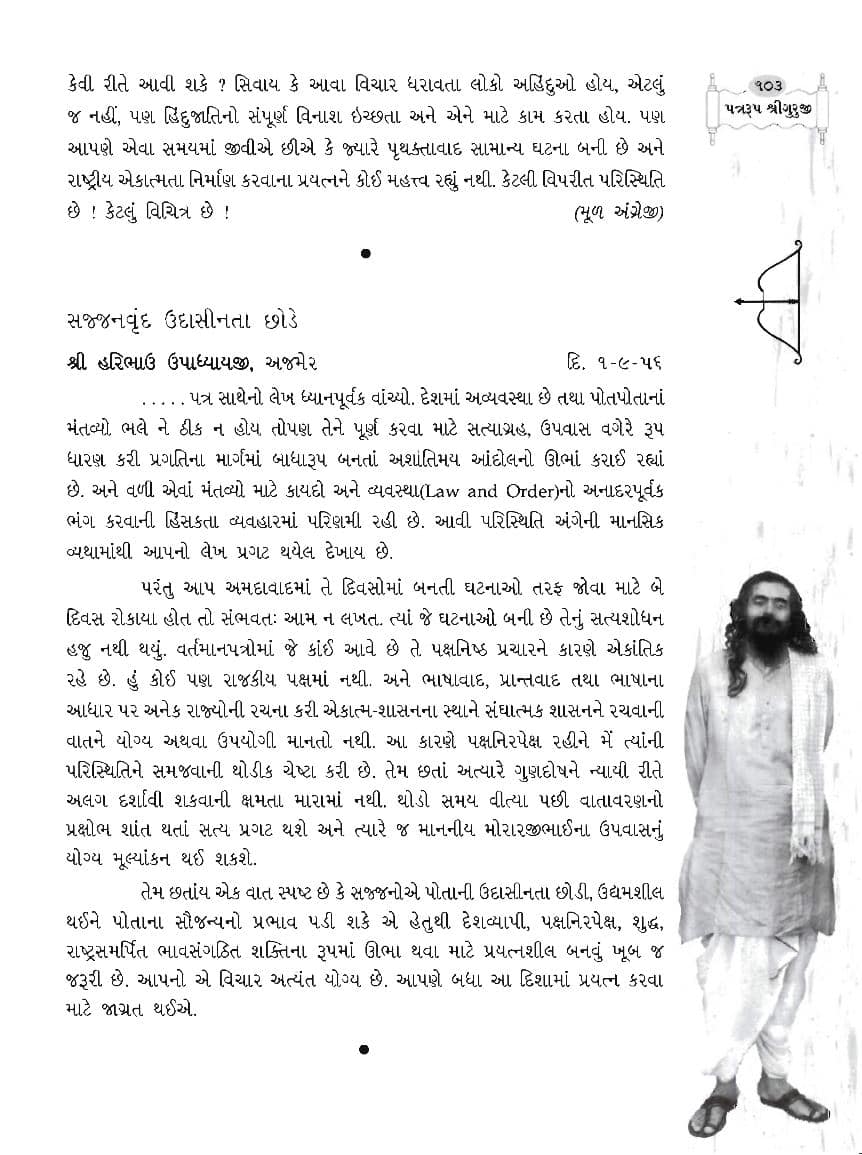 ૧૦૩
પત્રરૂપ શ્રીગુરુજી
કેવી રીતે આવી શકે ? સિવાય કે આવા વિચાર ધરાવતા લોકો અહિંદુઓ હોય, એટલું
જ નહીં, પણ હિંદુજાતિનો સંપૂર્ણ વિનાશ ઇચ્છતા અને એને માટે કામ કરતા હોય. પણ
આપણે એવા સમયમાં જીવીએ છીએ કે જ્યારે પૃથક્તાવાદ સામાન્ય ઘટના બની છે અને
રાષ્ટ્રીય એકાત્મતા નિર્માણ કરવાના પ્રયત્નને કોઈ મહત્ત્વ રહ્યું નથી. કેટલી વિપરીત પરિસ્થિતિ
છે ! કેટલું વિચિત્ર છે ! (મૂળ અંગ્રેજી)
•
સજ્જનવૃંદ ઉદાસીનતા છોડે
શ્રી હરિભાઉ ઉપાધ્યાયજી, અજમેર દિ. ૧-૯-૫૬
..... પત્ર સાથેનો લેખ ધ્યાનપૂર્વક વાંચ્યો. દેશમાં અવ્યવસ્થા છે તથા પોતપોતાનાં
મંતવ્યો ભલે ને ઠીક ન હોય તોપણ તેને પૂર્ણ કરવા માટે સત્યાગ્રહ, ઉપવાસ વગેરે રૂપ
ધારણ કરી પ્રગતિના માર્ગમાં બાધારૂપ બનતાં અશાંતિમય આંદોલનો ઊભાં કરાઈ રહ્યાં
છે. અને વળી એવાં મંતવ્યો માટે કાયદો અને વ્યવસ્થા(Law and Order)નો અનાદરપૂર્વક
ભંગ કરવાની હિંસકતા વ્યવહારમાં પરિણમી રહી છે. આવી પરિસ્થિતિ અંગેની માનસિક
વ્યથામાંથી આપનો લેખ પ્રગટ થયેલ દેખાય છે.
પરંતુ આપ અમદાવાદમાં તે દિવસોમાં બનતી ઘટનાઓ તરફ જોવા માટે બે
દિવસ રોકાયા હોત તો સંભવતઃ આમ ન લખત. ત્યાં જે ઘટનાઓ બની છે તેનું સત્યશોધન
હજુ નથી થયું. વર્તમાનપત્રોમાં જે કાંઈ આવે છે તે પક્ષનિષ્ઠ પ્રચારને કારણે એકાંતિક
રહે છે. હું કોઈ પણ રાજકીય પક્ષમાં નથી. અને ભાષાવાદ, પ્રાન્તવાદ તથા ભાષાના
આધાર પર અનેક રાજ્યોની રચના કરી એકાત્મ-શાસનના સ્થાને સંઘાત્મક શાસનને રચવાની
વાતને યોગ્ય અથવા ઉપયોગી માનતો નથી. આ કારણે પક્ષનિરપેક્ષ રહીને મેં ત્યાંની
પરિસ્થિતિને સમજવાની થોડીક ચેષ્ટા કરી છે. તેમ છતાં અત્યારે ગુણદોષને ન્યાયી રીતે
અલગ દર્શાવી શકવાની ક્ષમતા મારામાં નથી. થોડો સમય વીત્યા પછી વાતાવરણનો
પ્રક્ષોભ શાંત થતાં સત્ય પ્રગટ થશે અને ત્યારે જ માનનીય મોરારજીભાઈના ઉપવાસનું
યોગ્ય મૂલ્યાંકન થઈ શકશે.
તેમ છતાંય એક વાત સ્પષ્ટ છે કે સજ્જનોએ પોતાની ઉદાસીનતા છોડી, ઉદ્યમશીલ
થઈને પોતાના સૌજન્યનો પ્રભાવ પડી શકે એ હેતુથી દેશવ્યાપી, પક્ષનિરપેક્ષ, શુદ્ધ,
રાષ્ટ્રસમર્પિત ભાવસંગઠિત શક્તિના રૂપમાં ઊભા થવા માટે પ્રયત્નશીલ બનવું ખૂબ જ
જરૂરી છે. આપનો એ વિચાર અત્યંત યોગ્ય છે. આપણે બધા આ દિશામાં પ્રયત્ન કરવા
માટે જાગ્રત થઈએ.
•